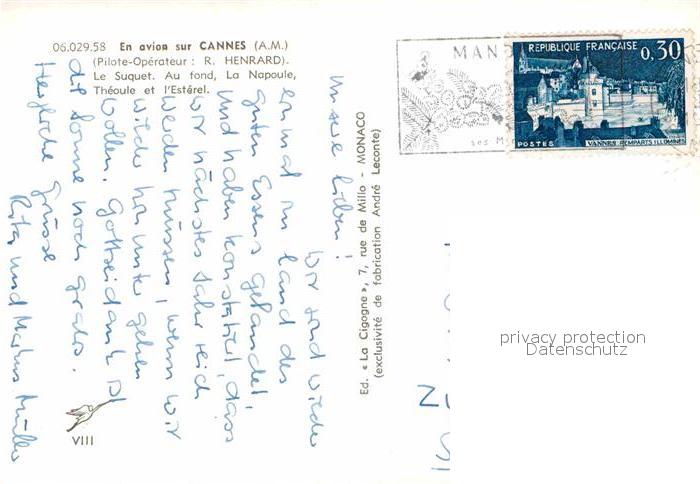 06.029.58 En avion sur CANNES (A.M.)
(Pilote-Opérateur : R. HENRARD).
Le Suquet. Au fond, La Napoule,
Théoule et l'Estérel.
Ihr Lieben!
Wir sind wieder
einmal im Land des
guten Essens gelandet,
und haben konstatiert, dass
wir nächstes Jahr reich
werden müssen, wenn wir
wieder hierunter gehen
wollen. Gottseidank ist
die Sonne noch gratis.
Herzliche Grüsse
Rita und Markus Müller
VIII
Ed. « La Cigogne », 7, rue de Millo - MONACO
(exclusivité de fabrication André Leconte)
MAN
ses M
RÉPUBLIQUE FRANÇAISE
0,30
POSTES
VANNES REMPARTS ILLUMINÉS
privacy protection
Datenschutz